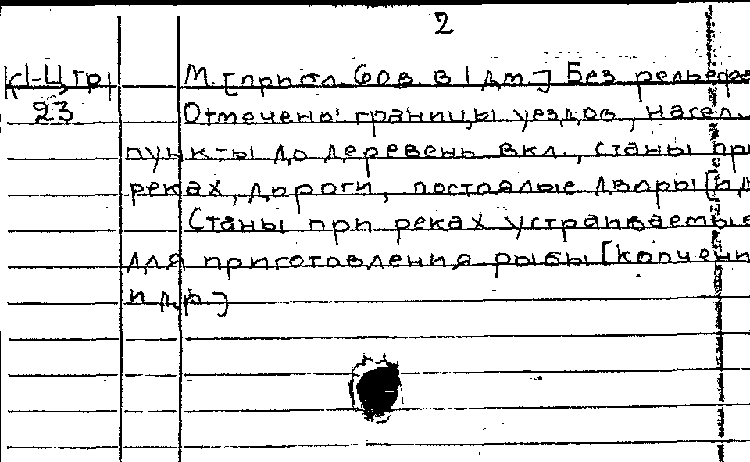 2
К1-Ц,гр
23
М. [прибл. 60 в. в 1 дм.] Без рельефа
Отмечены границы уездов, насел.
пункты до деревень вкл., станы при
реках, дороги, постоялые дворы [и д
Станы при реках устраиваемые
для приготовления рыбы [копчени
и др.]